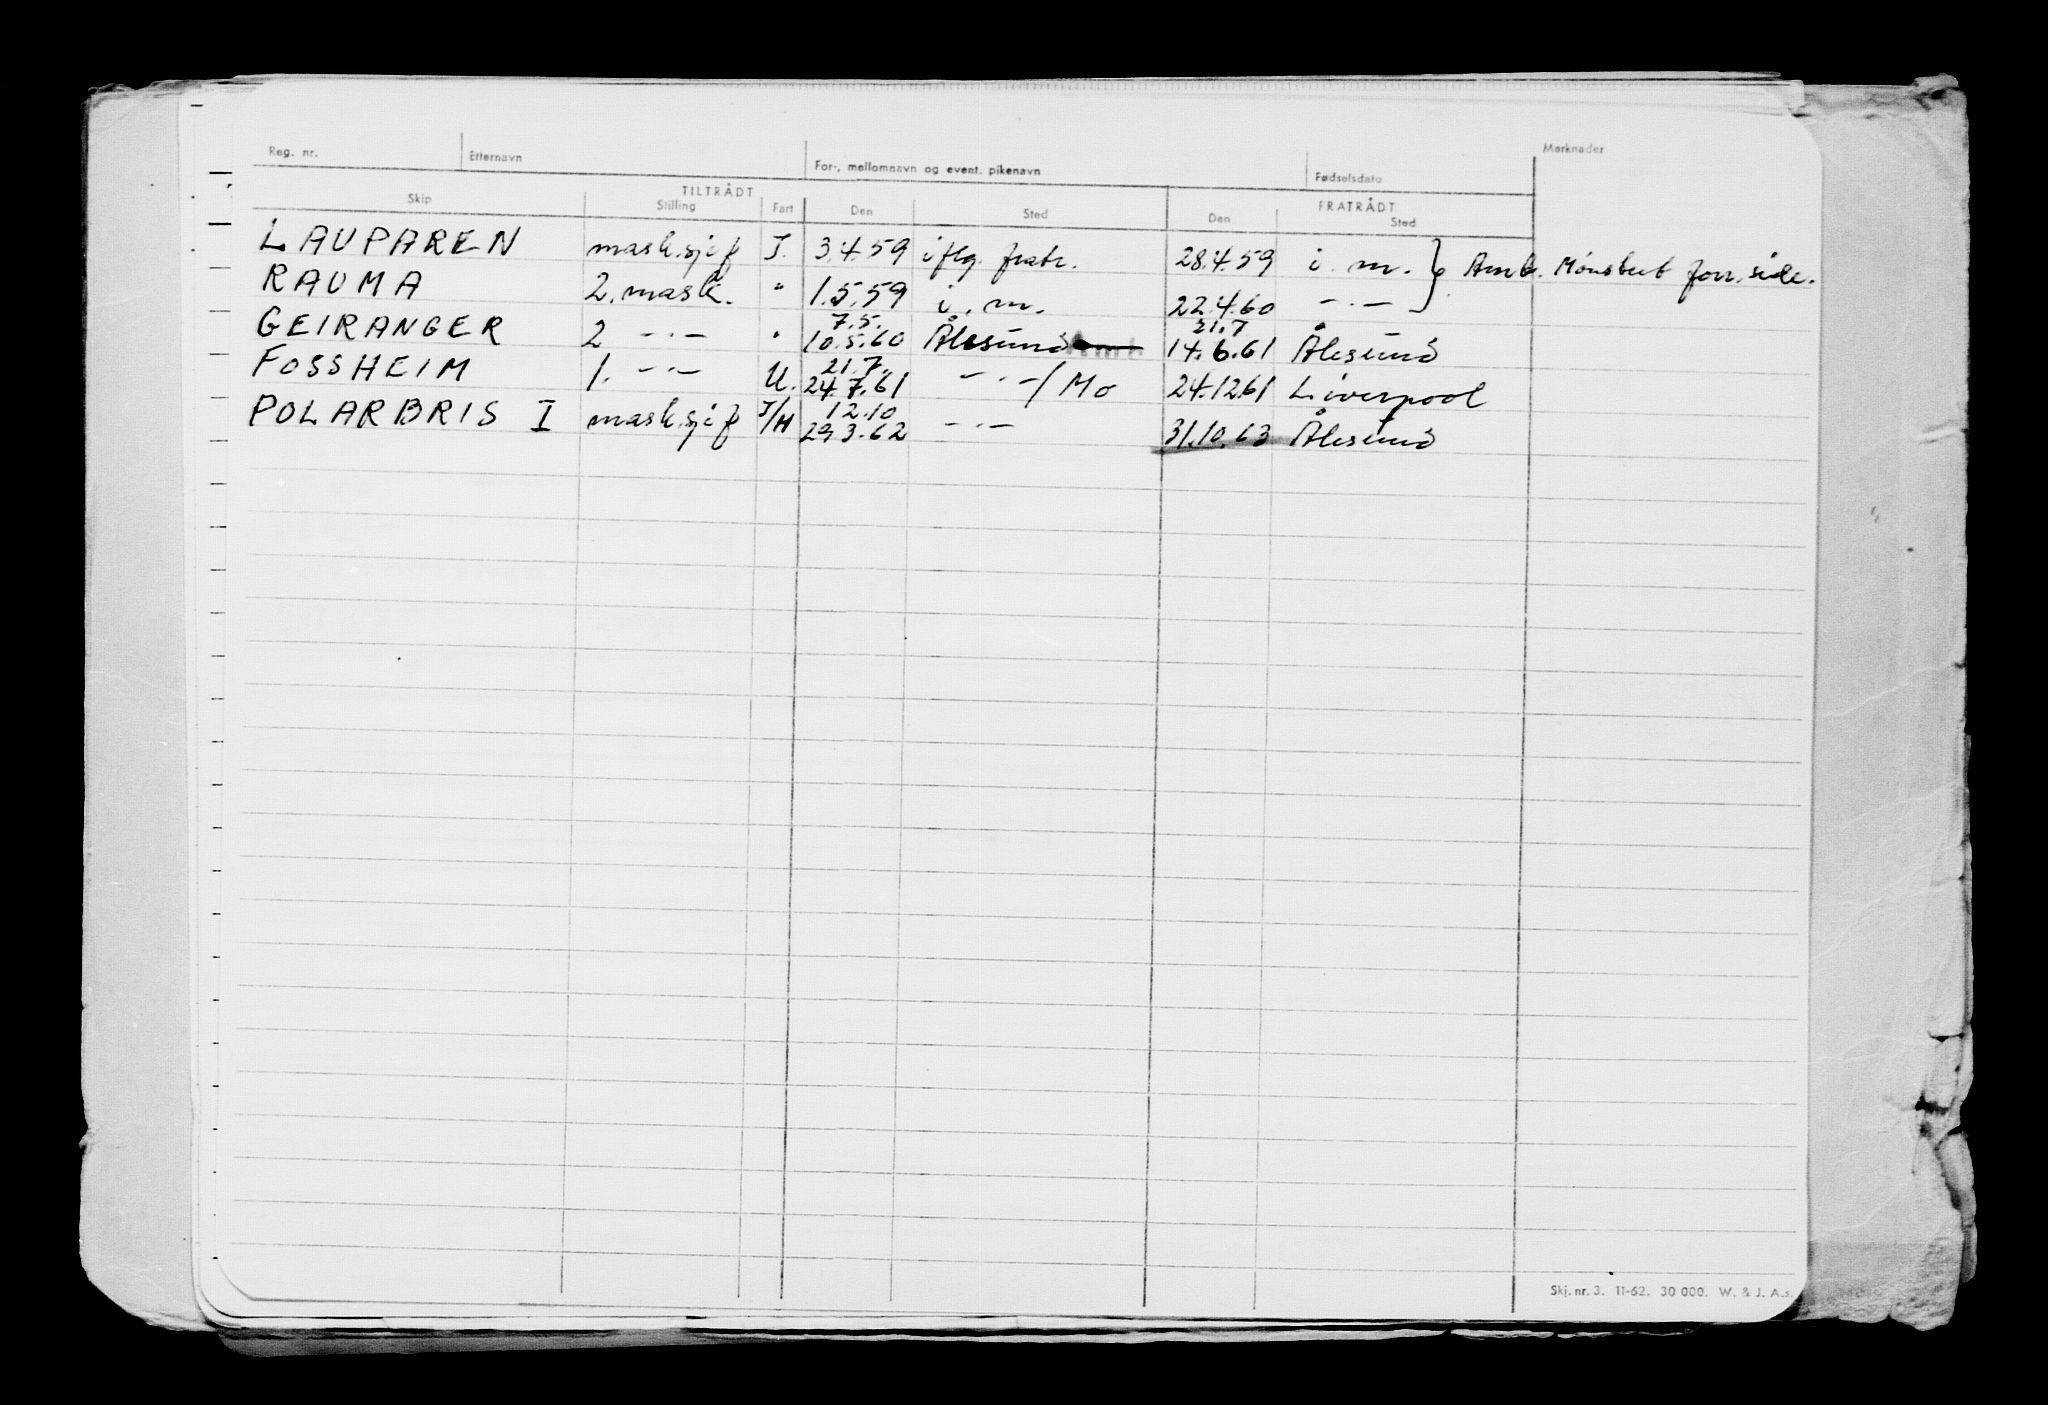 Reg. nr. Etternavn For-, mellomnavn og event. pikenavn Fødselsdato Merknader
TILTRÅDT FRATRÅDT
Skip Stilling Fart Den Sted Den Sted
LAUPAREN mask.sjef I. 3.4.59 iflg. fratr. 28.4.59 i. m. } Anm. Mønstret forr. side.
RAUMA 2. mask. " 1.5.59 i. m. 22.4.60 — . —
7.5. 21.7
GEIRANGER 2 — . — " 10.5.60 Ålesund 14.6.61 Ålesund
21.7.
FOSSHEIM 1. — . — U. 24.7.61 — . — / Mo 24.12.61 Liverpool
12.10
POLARBRIS I mask.sjef I/H 29.3.62 — . — 31.10.63 Ålesund
Skj. nr. 3. 11-62. 30 000. W. & J. A.s.